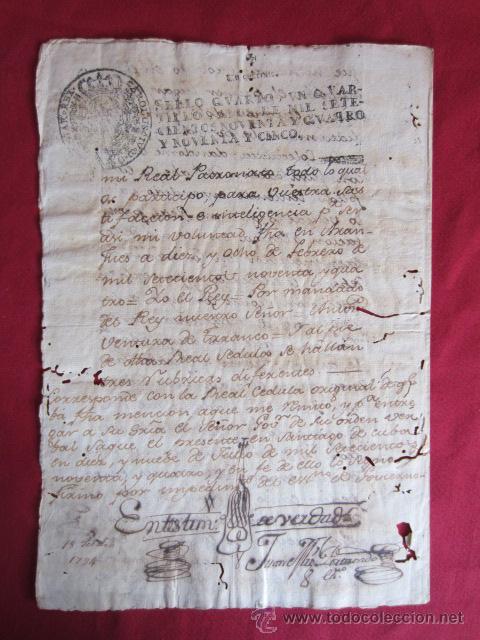 SELLO QVARTO, VN QVAR-
TILLO, AÑOS DE MIL SETE-
CIENTOS NOVENTA Y QVATRO
Y NOVENTA Y CINCO.
mi Real Patronato todo lo qual
os participo para vuestra Sa-
tisfaccion e inteligencia p.r Ser
asi mi voluntad. fha en Aran-
jues a diez, y ocho de febrero de
mil setecientos noventa, y qua
tro= Yo el Rey= Por mandado
del Rey nuestro Señor=
Ventura de Taranco=
de otra Real Sedula se hallan
tres rubricas diferentes
Corresponde con la Real Cedula original de q.e
ba fha mencion a que me remito, y p.a entre
gar a Su Sria el Señor Gov.r de Su orden ver
bal Saque el presente en Santiago de Cuba
en diez, y nueve de Julio de mil Setecientos
noventa, y quatro, y en fe de ello lo Signo
firmo por impedim.to del Govierno
En testim.o de verdad
Juan
1794
www.todocoleccion.net